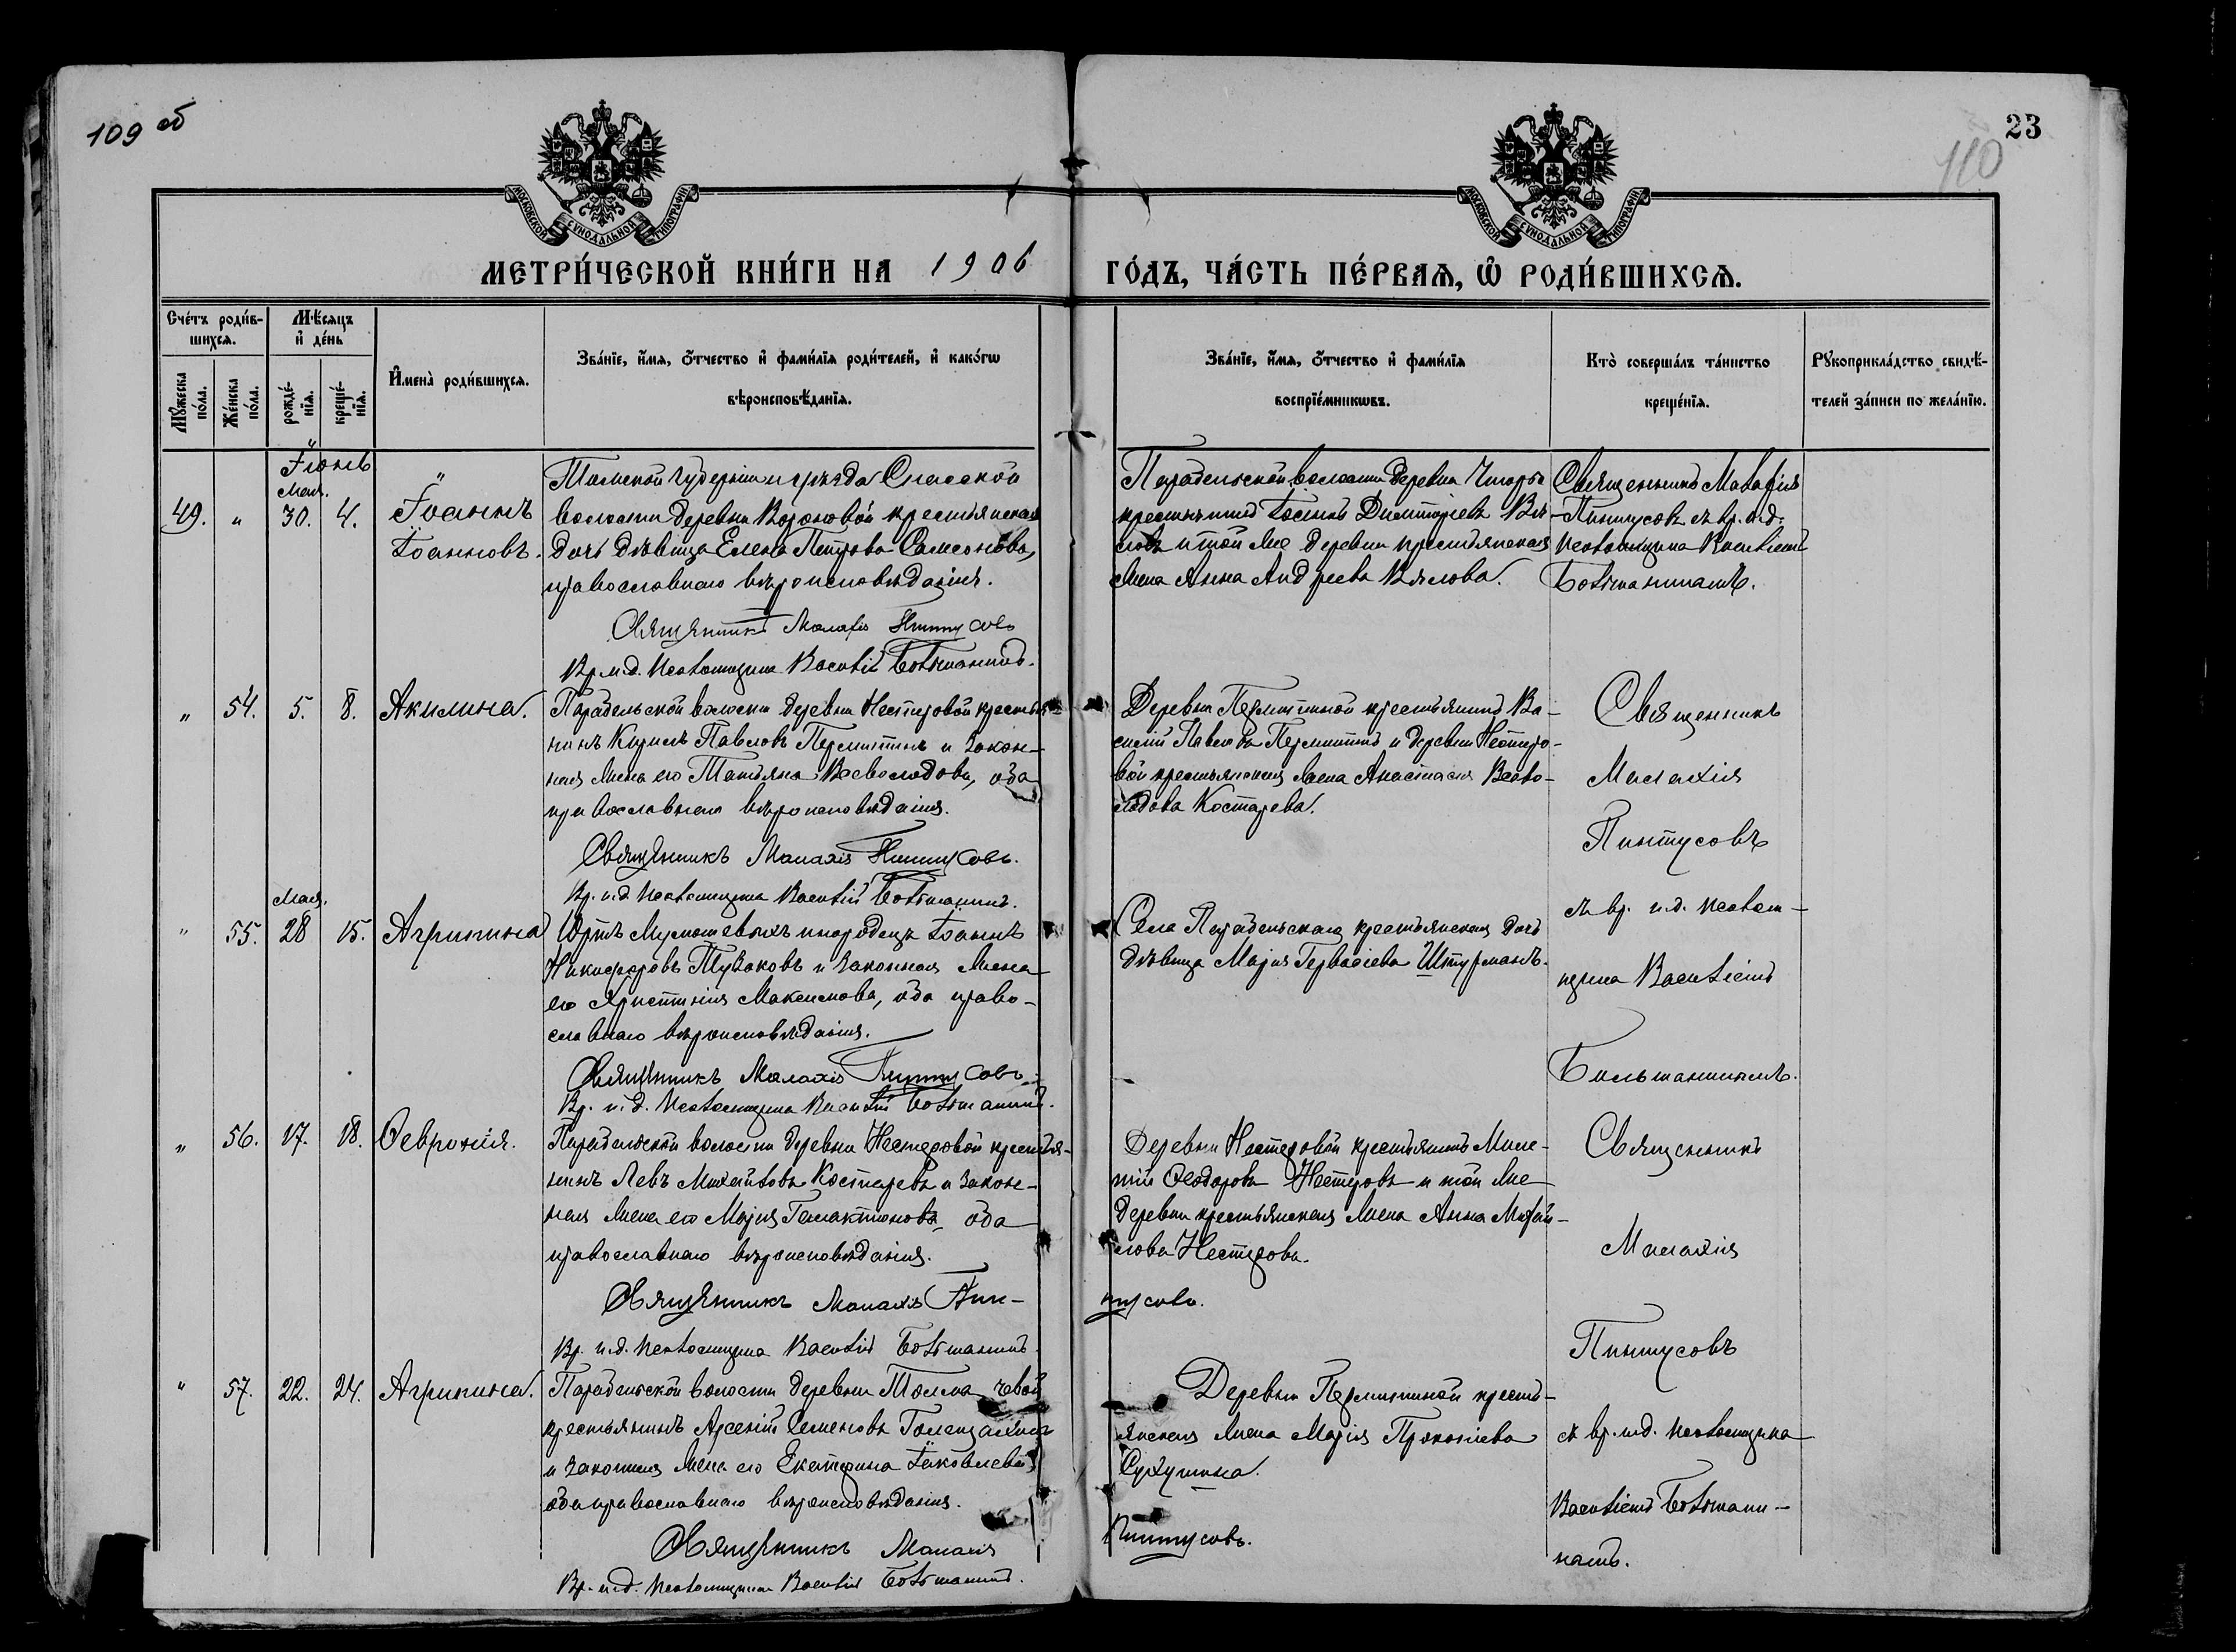 109 об
23
110
МОСКОВСКОЙ СѴНОДАЛЬНОЙ ТИПОГРАФІИ
МОСКОВСКОЙ СѴНОДАЛЬНОЙ ТИПОГРАФІИ
МЕТРИ́ЧЕСКОЙ КНИ́ГИ НА 1906 ГО́ДЪ, ЧА́СТЬ ПЕ́РВАѦ, Ѡ҆ РОДИ́ВШИХСѦ.
Сче́тъ роди́в-
шихсѧ.
Мꙋ́жеска по́ла.
Же́нска по́ла.
Мѣ́сѧцъ
и҆ де́нь
рожде́-
нїѧ.
креще́-
нїѧ.
И҆мена̀ роди́вшихсѧ.
Зва́нїе, и҆́мѧ, ѻ҆́тчество и҆ фами́лїѧ роди́телей, и҆ како́гѡ
вѣроисповѣ́данїѧ.
Зва́нїе, и҆́мѧ, ѻ҆́тчество и҆ фами́лїѧ
воспрїе́мникѡвъ.
Кто̀ соверша́лъ та́инство
креще́нїѧ.
Рꙋкоприкла́дство свидѣ́-
телей за́писи по жела́нїю.
Іюнь
Мая.
49. " 30. 4.
Іоаннъ
Іоанновъ.
Томской губерніи и уѣзда Спасской
волости деревни Вороновой крестьянская
дочь дѣвица Елена Петрова Самсонова,
православнаго вѣроисповѣданія.
Священникъ Малахія Пинтусовъ
Вр. и.д. псаломщика Василій Большанинъ.
Парабельской волости деревни Чигары
крестьянинъ Іоаннъ Димитріевъ Вя-
ловъ и той же деревни крестьянская
жена Анна Андреева Вялова.
Священникъ Малахія
Пинтусовъ съ вр. и.д.
псаломщика Василіемъ
Большанинымъ.
" 54. 5. 8. Акилина.
Парабельской волости деревни Нестеровой крестья-
нинъ Кирилъ Павловъ Пермитинъ и закон-
ная жена его Татьяна Всеволодова, оба
православнаго вѣроисповѣданія.
Священникъ Малахія Пинтусовъ.
Вр. и.д. псаломщика Василій Большанинъ.
Деревни Пермитиной крестьянинъ Ва-
силій Павловъ Пермитинъ и деревни Нестеро-
вой крестьянская жена Анастасія Всево-
лодова Костарева.
Священникъ
Малахія
Пинтусовъ
съ вр. и.д. псалом-
щика Василіемъ
Большанинымъ.
Мая.
" 55. 28 15. Агрипина
Юртъ Мумышевыхъ инородецъ Іоаннъ
Никифоровъ Тузаковъ и законная жена
его Христинія Максимова, оба право-
славнаго вѣроисповѣданія.
Священникъ Малахія Пинтусовъ.
Вр. и.д. псаломщика Василій Большанинъ.
Села Парабельскаго крестьянская дочь
дѣвица Марія Гервасіева Штурманъ.
" 56. 17. 18. Ѳевронія.
Парабельской волости деревни Нестеровой крестья-
нинъ Левъ Михайловъ Костаревъ и закон-
ная жена его Марія Галактіонова, оба
православнаго вѣроисповѣданія.
Священникъ Малахія Пин-
тусовъ.
Вр. и.д. псаломщика Василій Большанинъ.
Деревни Нестеровой крестьянинъ Миле-
тій Ѳеодоровъ Нестеровъ и той же
деревни крестьянская жена Анна Михай-
лова Нестерова.
Священникъ
Малахія
Пинтусовъ
съ вр. и.д. псаломщика
Василіемъ Большани-
нымъ.
" 57. 22. 24. Агрипина.
Парабельской волости деревни Толмачевой
крестьянинъ Арсеній Семеновъ Голещахинъ
и законная жена его Екатерина Іаковлева,
оба православнаго вѣроисповѣданія.
Священникъ Малахія
Пинтусовъ.
Вр. и.д. псаломщика Василій Большанинъ.
Деревни Пермитиной кресть-
янская жена Марія Прокопіева
Сухушина.